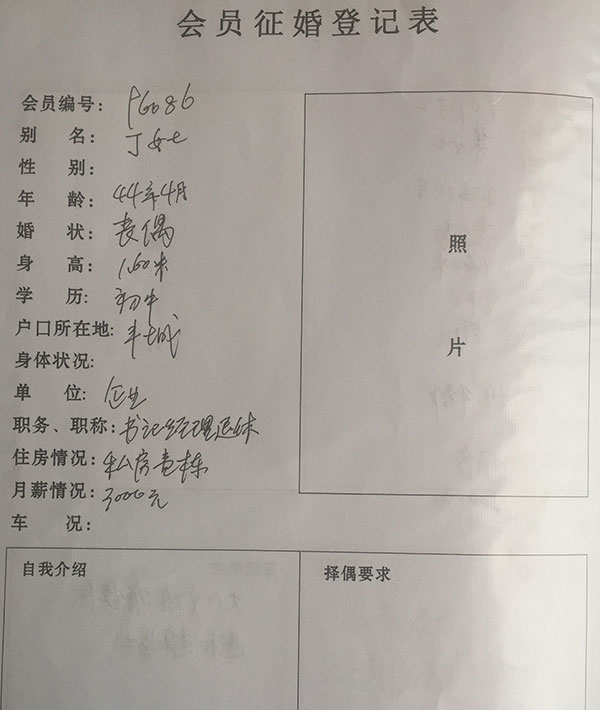 会员征婚登记表
会员编号: P6086
别 名: 丁女士
性 别:
年 龄: 44年4月
婚 状: 丧偶
身 高: 1.60米
学 历: 初中
户口所在地: 丰城
身体状况:
单 位: 企业
职务、职称: 书记经理退休
住房情况: 私房壹栋
月薪情况: 3000元
车 况:
照
片
自我介绍
择偶要求